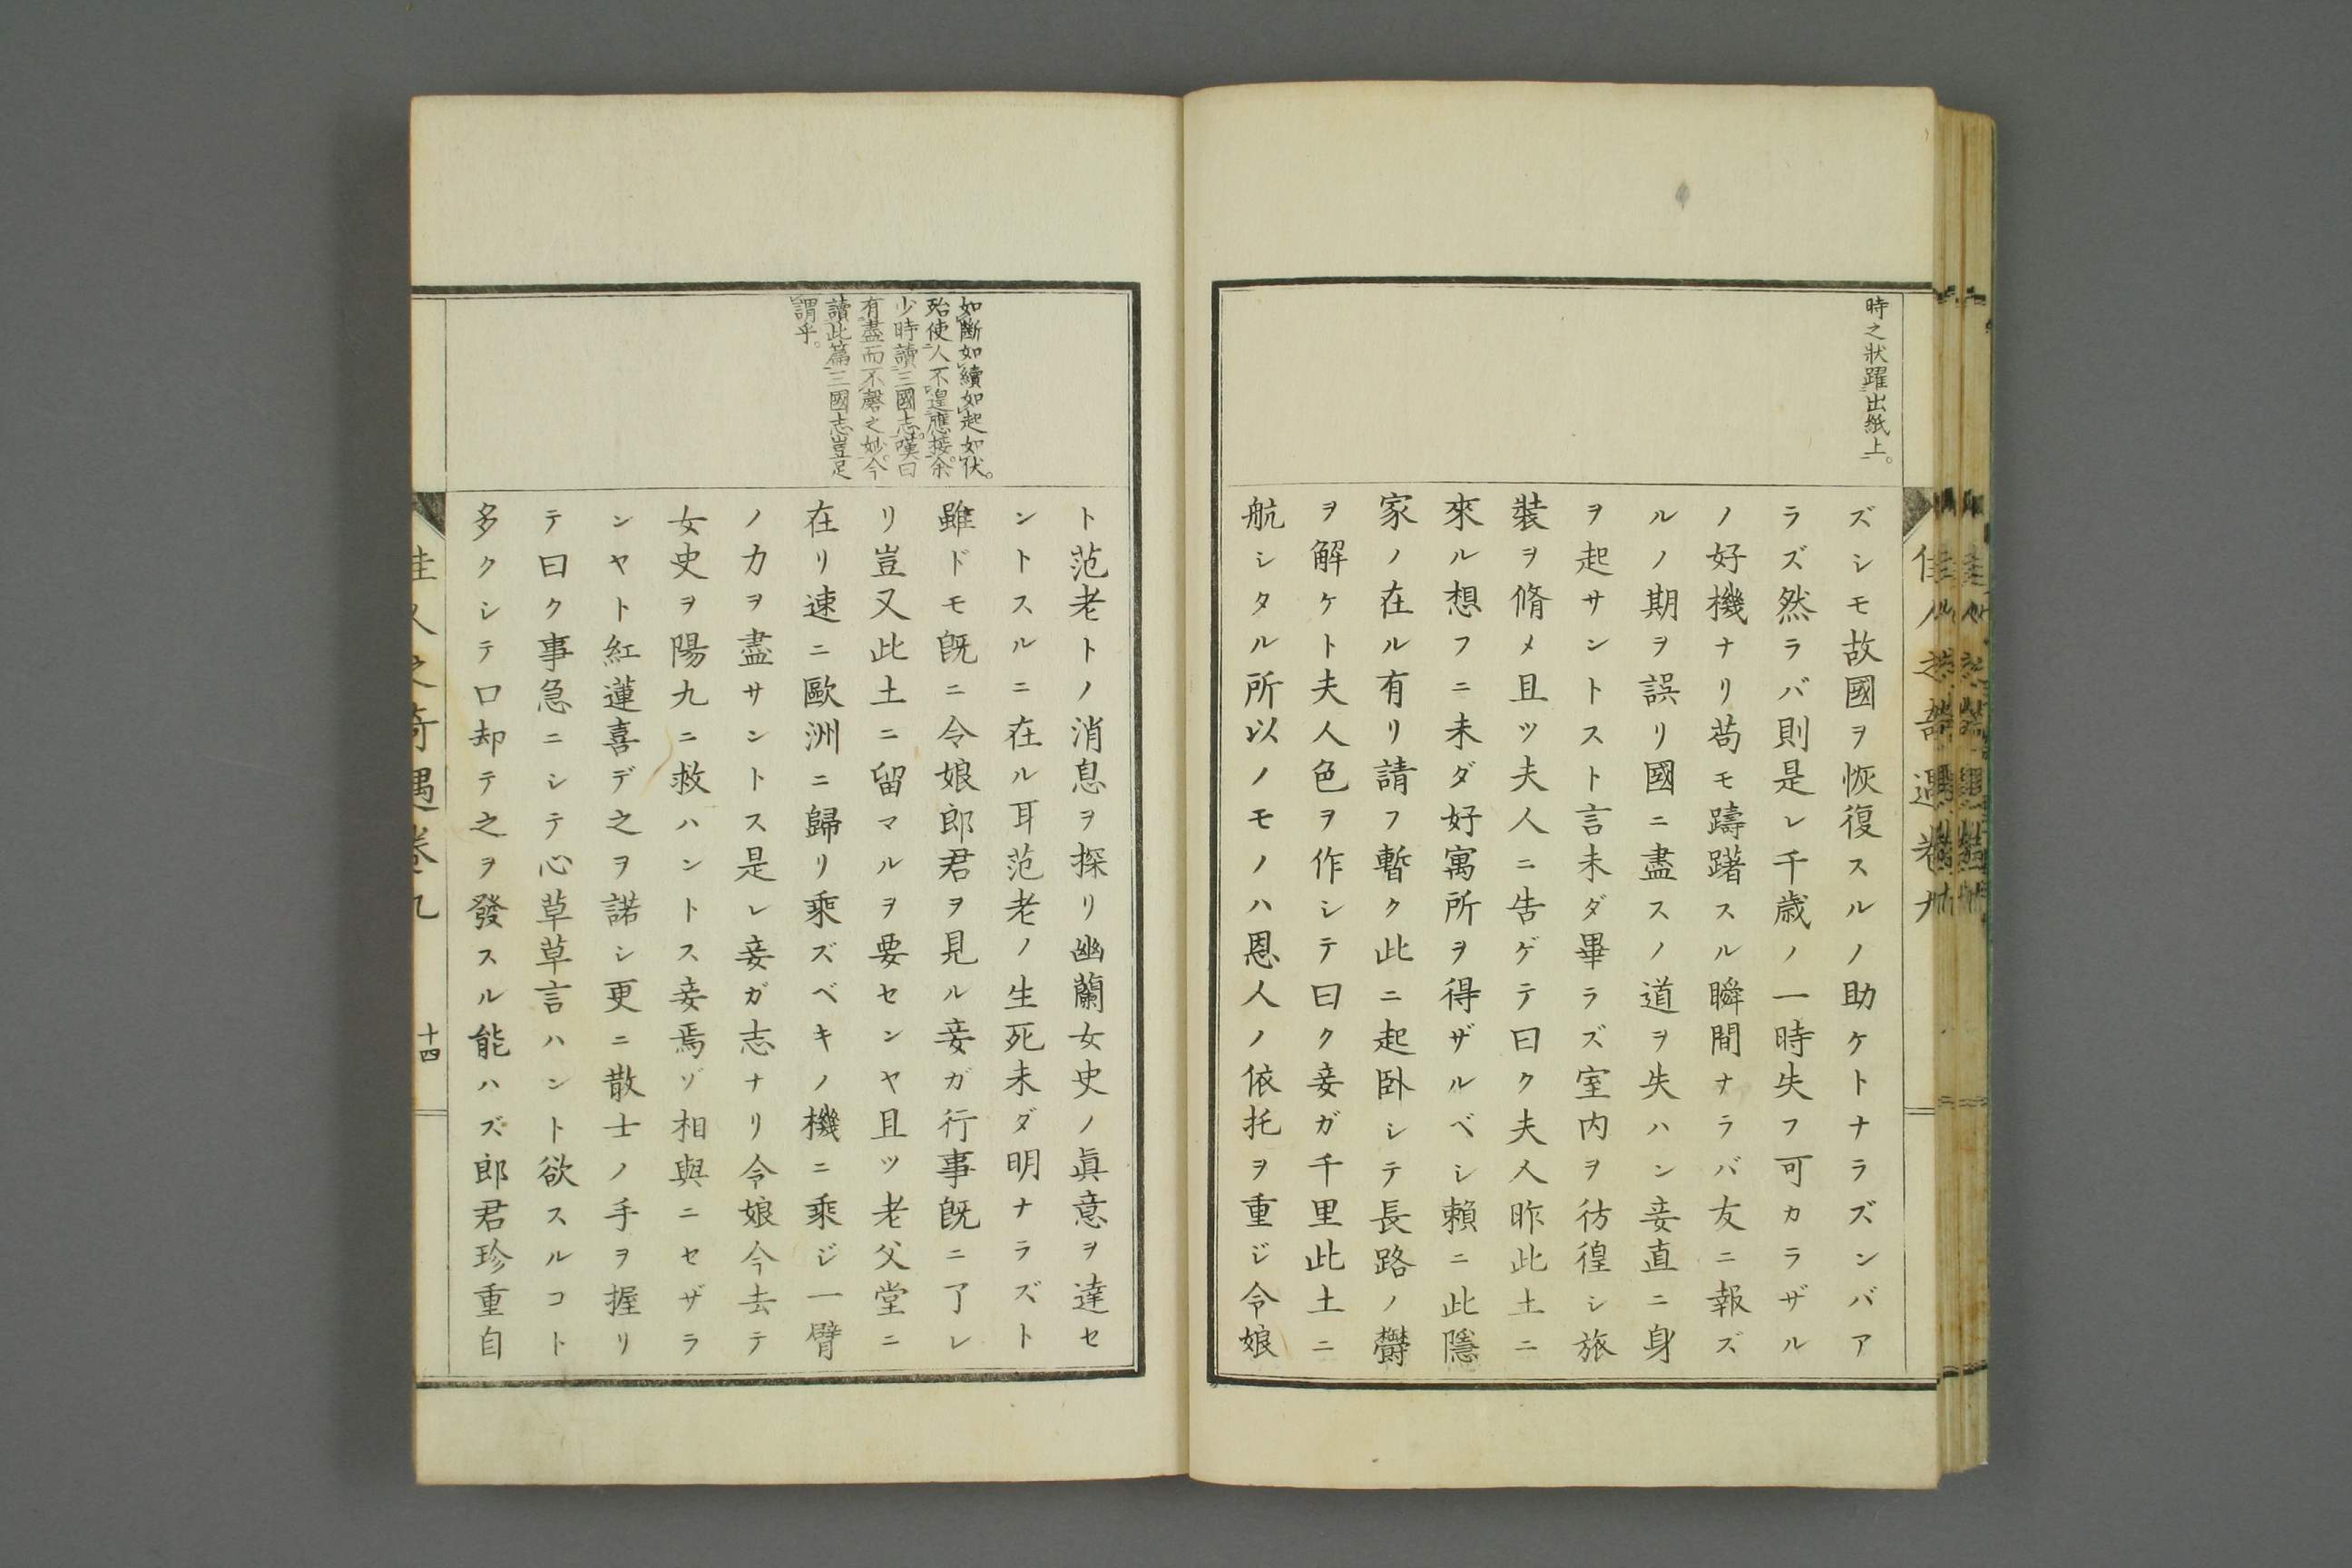 時之狀躍出紙上。
ズシモ故國ヲ恢復スルノ助ケトナラズンバア
ラズ然ラバ則是レ千歳ノ一時失フ可カラザル
ノ好機ナリ苟モ躊躇スル瞬間ナラバ友ニ報ズ
ルノ期ヲ誤リ國ニ盡スノ道ヲ失ハン妾直ニ身
ヲ起サントスト言未ダ畢ラズ室内ヲ彷徨シ旅
裝ヲ脩メ且ツ夫人ニ告ゲテ曰ク夫人昨此土ニ
來ル想フニ未ダ好寓所ヲ得ザルベシ賴ニ此隱
家ノ在ル有リ請フ暫ク此ニ起卧シテ長路ノ欝
ヲ解ケト夫人色ヲ作シテ曰ク妾ガ千里此土ニ
航シタル所以ノモノハ恩人ノ依托ヲ重ジ令娘
如斷如續如起如伏。
殆使人不遑應接余
少時讀三國志。嘆曰
有盡而不罄之妙。今
讀此篇三國志豈足
謂乎。
ト范老トノ消息ヲ探リ幽蘭女史ノ眞意ヲ達セ
ントスルニ在ル耳范老ノ生死未ダ明ナラズト
雖ドモ旣ニ令娘郎君ヲ見ル妾ガ行事旣ニ了レ
リ豈又此土ニ留マルヲ要センヤ且ツ老父堂ニ
在リ速ニ歐洲ニ歸リ乘ズベキノ機ニ乘ジ一臂
ノ力ヲ盡サントス是レ妾ガ志ナリ令娘今去テ
女史ヲ陽九ニ救ハントス妾焉ゾ相與ニセザラ
ンヤト紅蓮喜デ之ヲ諾シ更ニ散士ノ手ヲ握リ
テ曰ク事急ニシテ心草草言ハント欲スルコト
多クシテ口却テ之ヲ發スル能ハズ郎君珍重自
佳人之奇遇卷九
十四